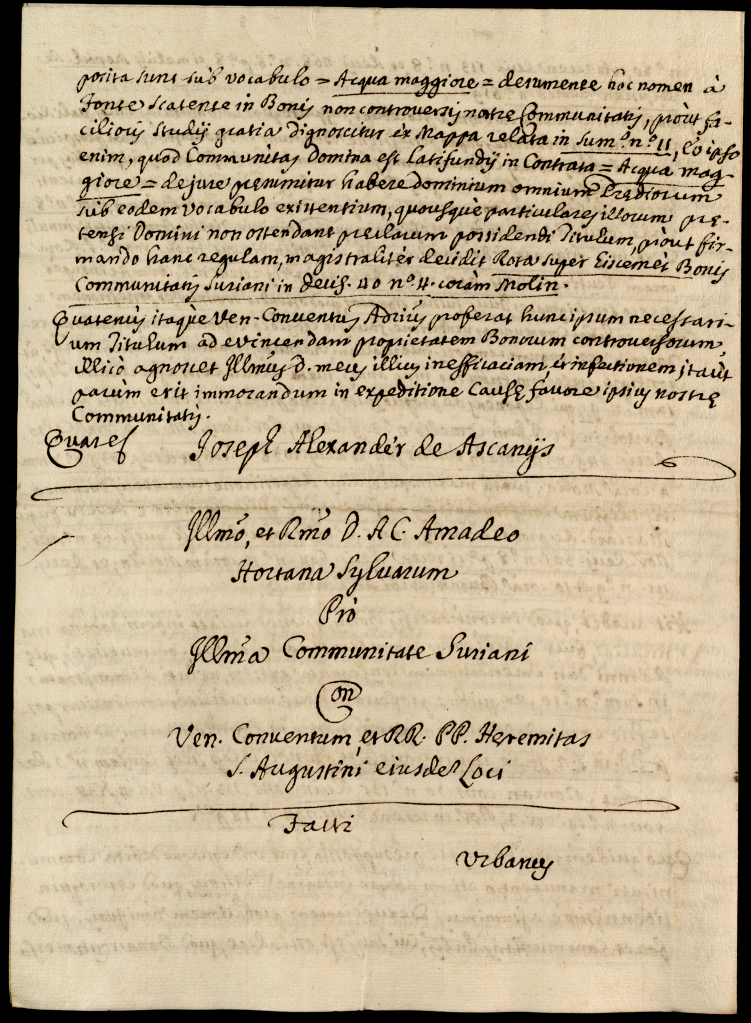 posita sunt sub vocabulo = Acqua maggiore = desumente hoc nomen à
Fonte scatente in Bonis non controversis nostre Communitatis, proùt fa-
cilioris studij gratia dignoscitur ex Mappa relata in sum.º n.º 11, Eo ipso
enim, quod Communitas Domina est Latifundij in Contrata = Acqua mag-
giore = de jure presumitur habere dominium omnium Prediorum
sub eodem vocabulo existentium, quousque particulares illorum prę-
tensi Domini non ostendant preclarum possidendi Titulum, proùt fir-
mando hanc regulam, magistralitèr decidit Rota super Eiscemét Bonis
Communitatis Suriani in decis. 40 n.º 4. coràm Molin.
Quatenus itaque Ven. Conventus Adrius proferat hunc ipsum necessari-
um Titulum ad evincendam proprietatem Bonorum controversorum,
illicò agnoscet Illmus D. meus illius inefficaciam, et infectionem, ita ut
parùm erit immorandum in expeditione Causę favore ipsius nostrę
Communitatis.
Quare &
Joseph Alexandér de Ascanijs
Illmo, et Rmo D. A. C. Amadeo
Hortana Sylvarum
Prò
Illma Communitate Suriani
Con
Ven. Conventum, et RR. PP. Heremitas
S. Augustini eiusdem Loci
Facti
Urbanus